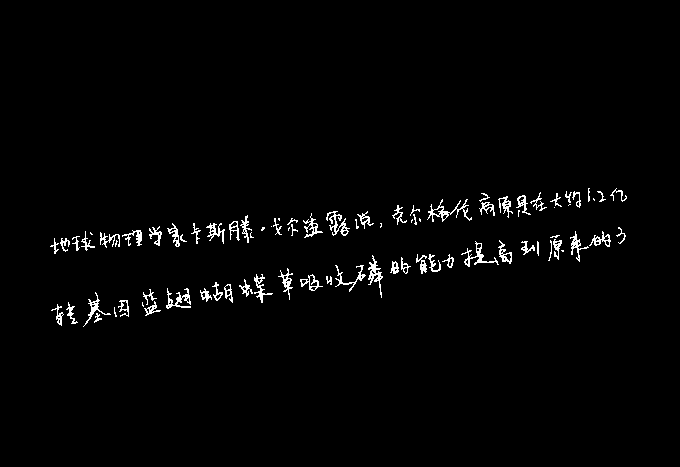 地球物理学家卡斯滕·戈尔透露说,克尔格伦高原是在大约1.2亿
转基因蓝翅蝴蝶草吸收磷的能力提高到原来的3